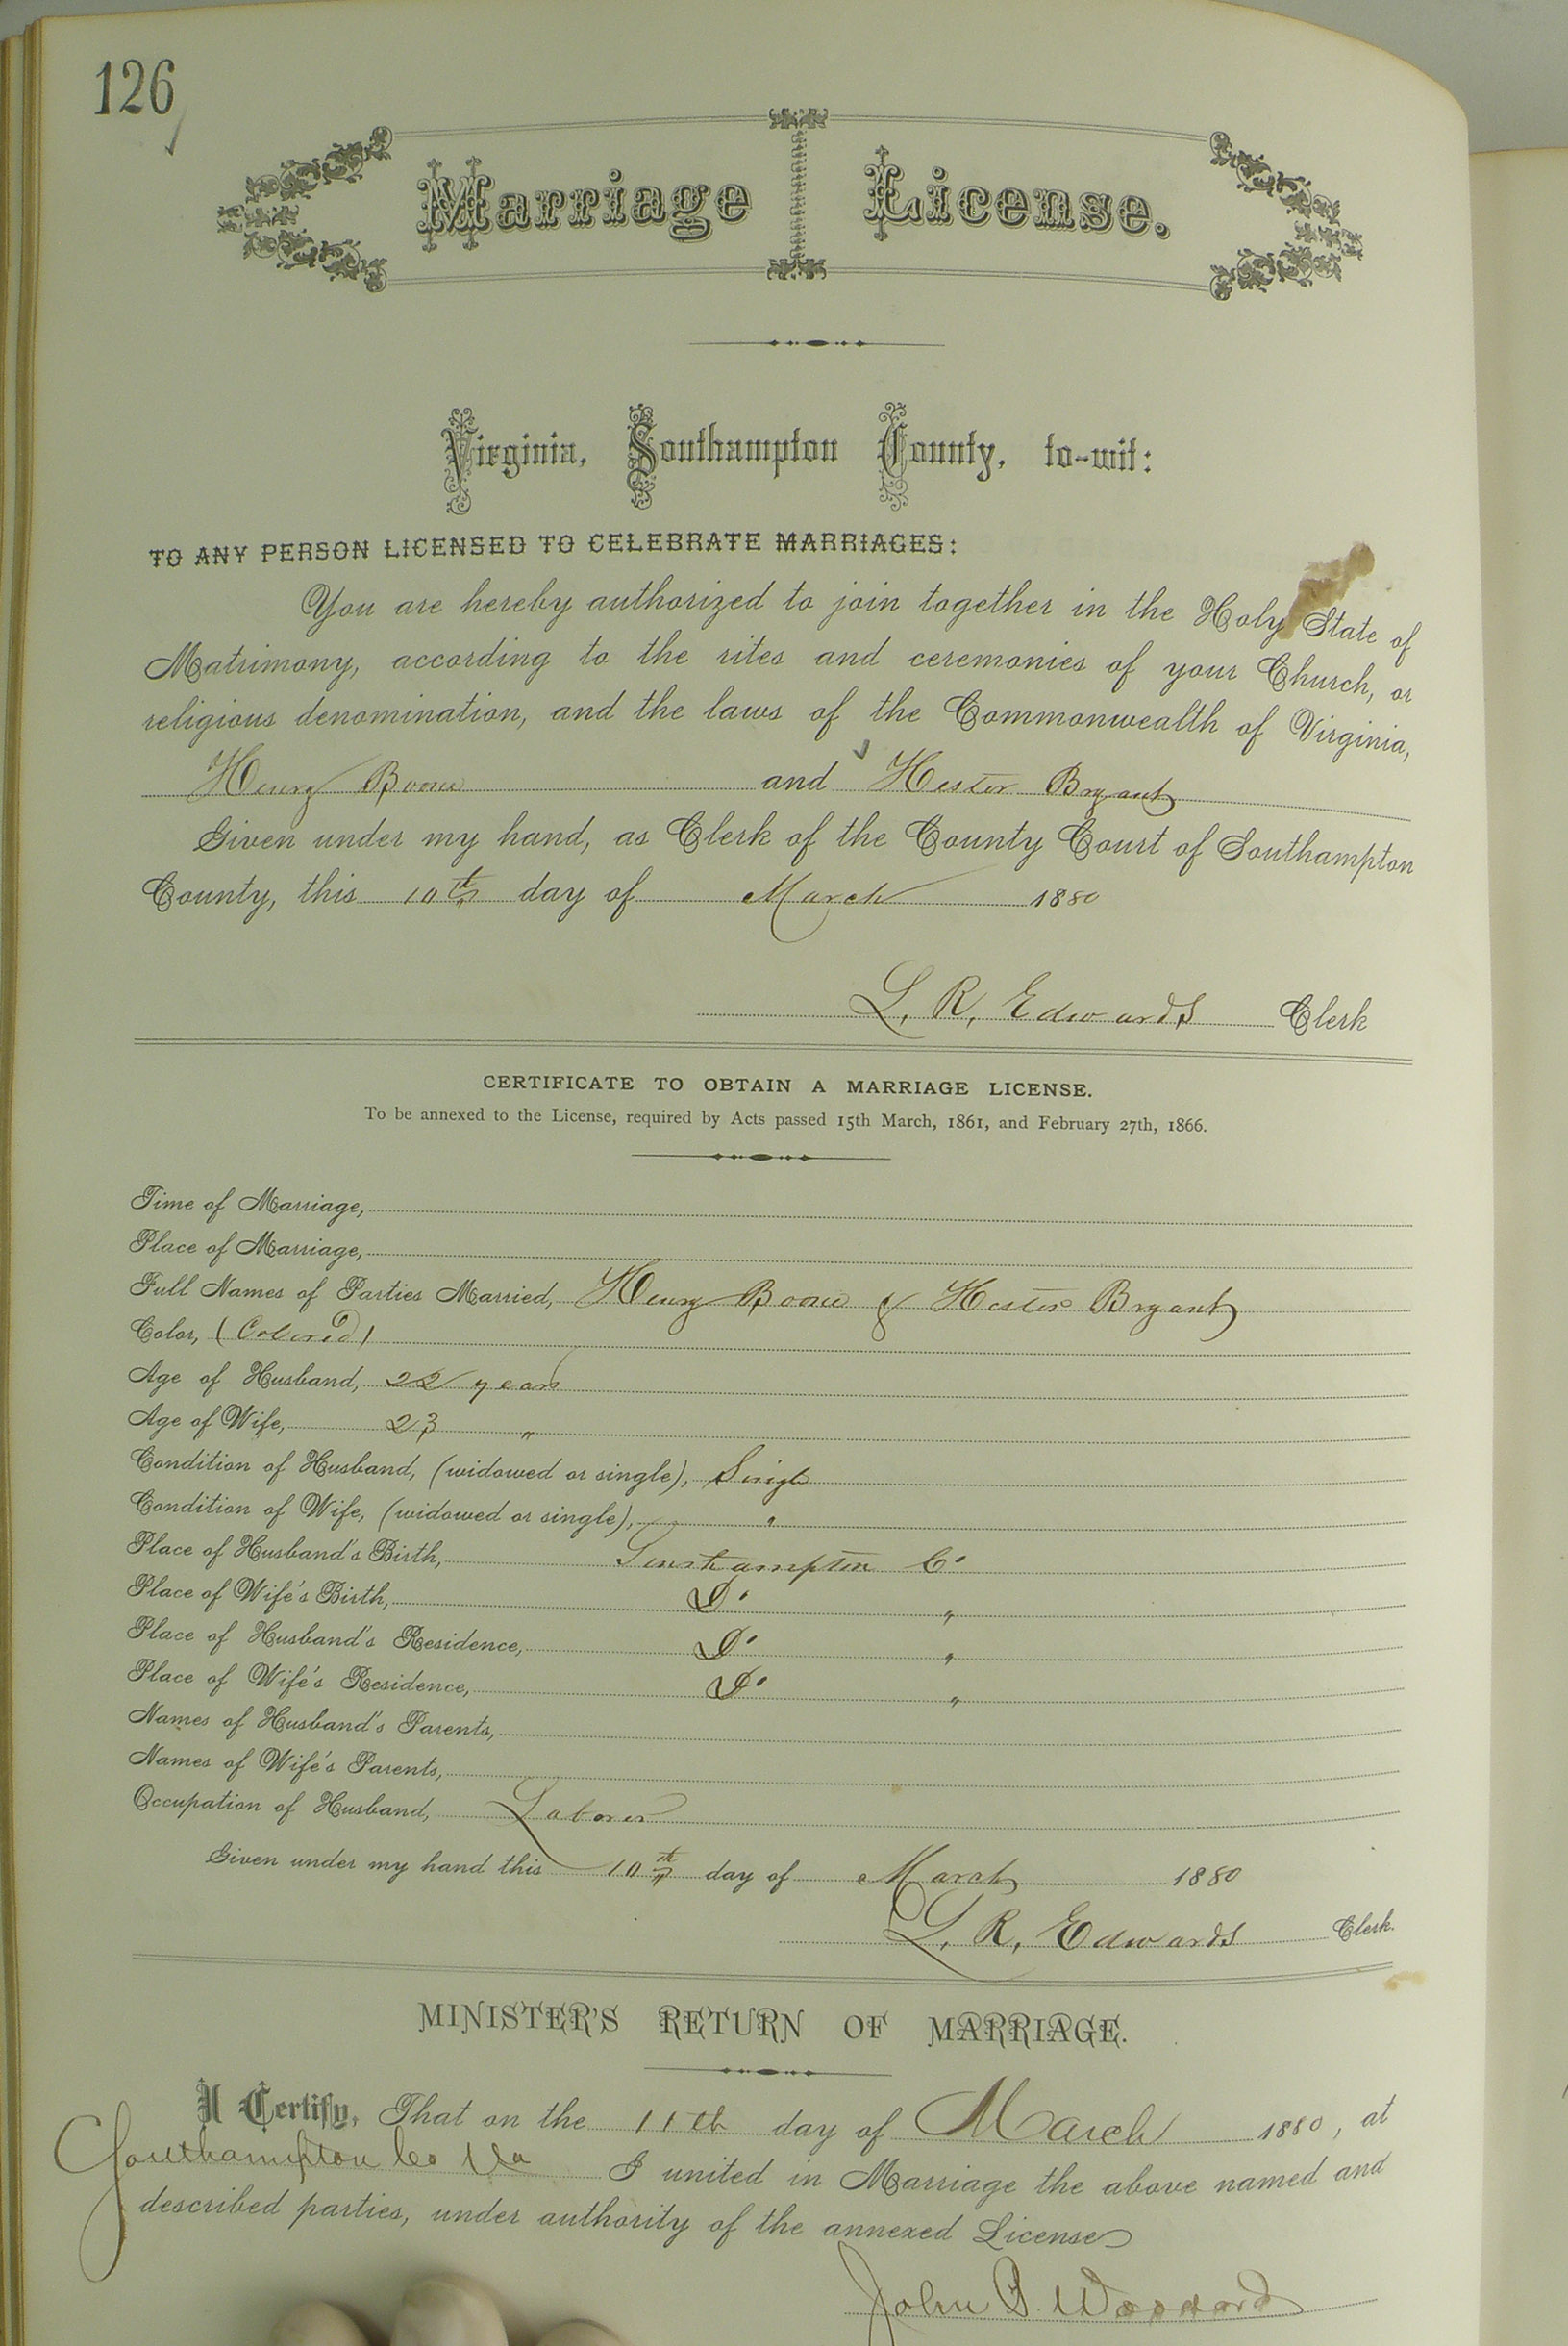 126
Marriage License.
Virginia, Southampton County, to-wit:
TO ANY PERSON LICENSED TO CELEBRATE MARRIAGES:
You are hereby authorized to join together in the Holy State of
Matrimony, according to the rites and ceremonies of your Church, or
religious denomination, and the laws of the Commonwealth of Virginia,
Henry Boone and Hester Bryant
Given under my hand, as Clerk of the County Court of Southampton
County, this 10th day of March 1880
L. R. Edwards Clerk
CERTIFICATE TO OBTAIN A MARRIAGE LICENSE.
To be annexed to the License, required by Acts passed 15th March, 1861, and February 27th, 1866.
Time of Marriage,
Place of Marriage,
Full Names of Parties Married, Henry Boone & Hester Bryant
Color, (Colored)
Age of Husband, 22 years
Age of Wife, 23 "
Condition of Husband, (widowed or single), Single
Condition of Wife, (widowed or single), "
Place of Husband's Birth, Southampton Co
Place of Wife's Birth, Do "
Place of Husband's Residence, Do "
Place of Wife's Residence, Do "
Names of Husband's Parents,
Names of Wife's Parents,
Occupation of Husband, Laborer
Given under my hand this 10th day of March 1880
L. R. Edwards Clerk.
MINISTER'S RETURN OF MARRIAGE.
I Certify, That on the 11th day of March 1880, at
Southampton Co Va I united in Marriage the above named and
described parties, under authority of the annexed License
John B. Woodard